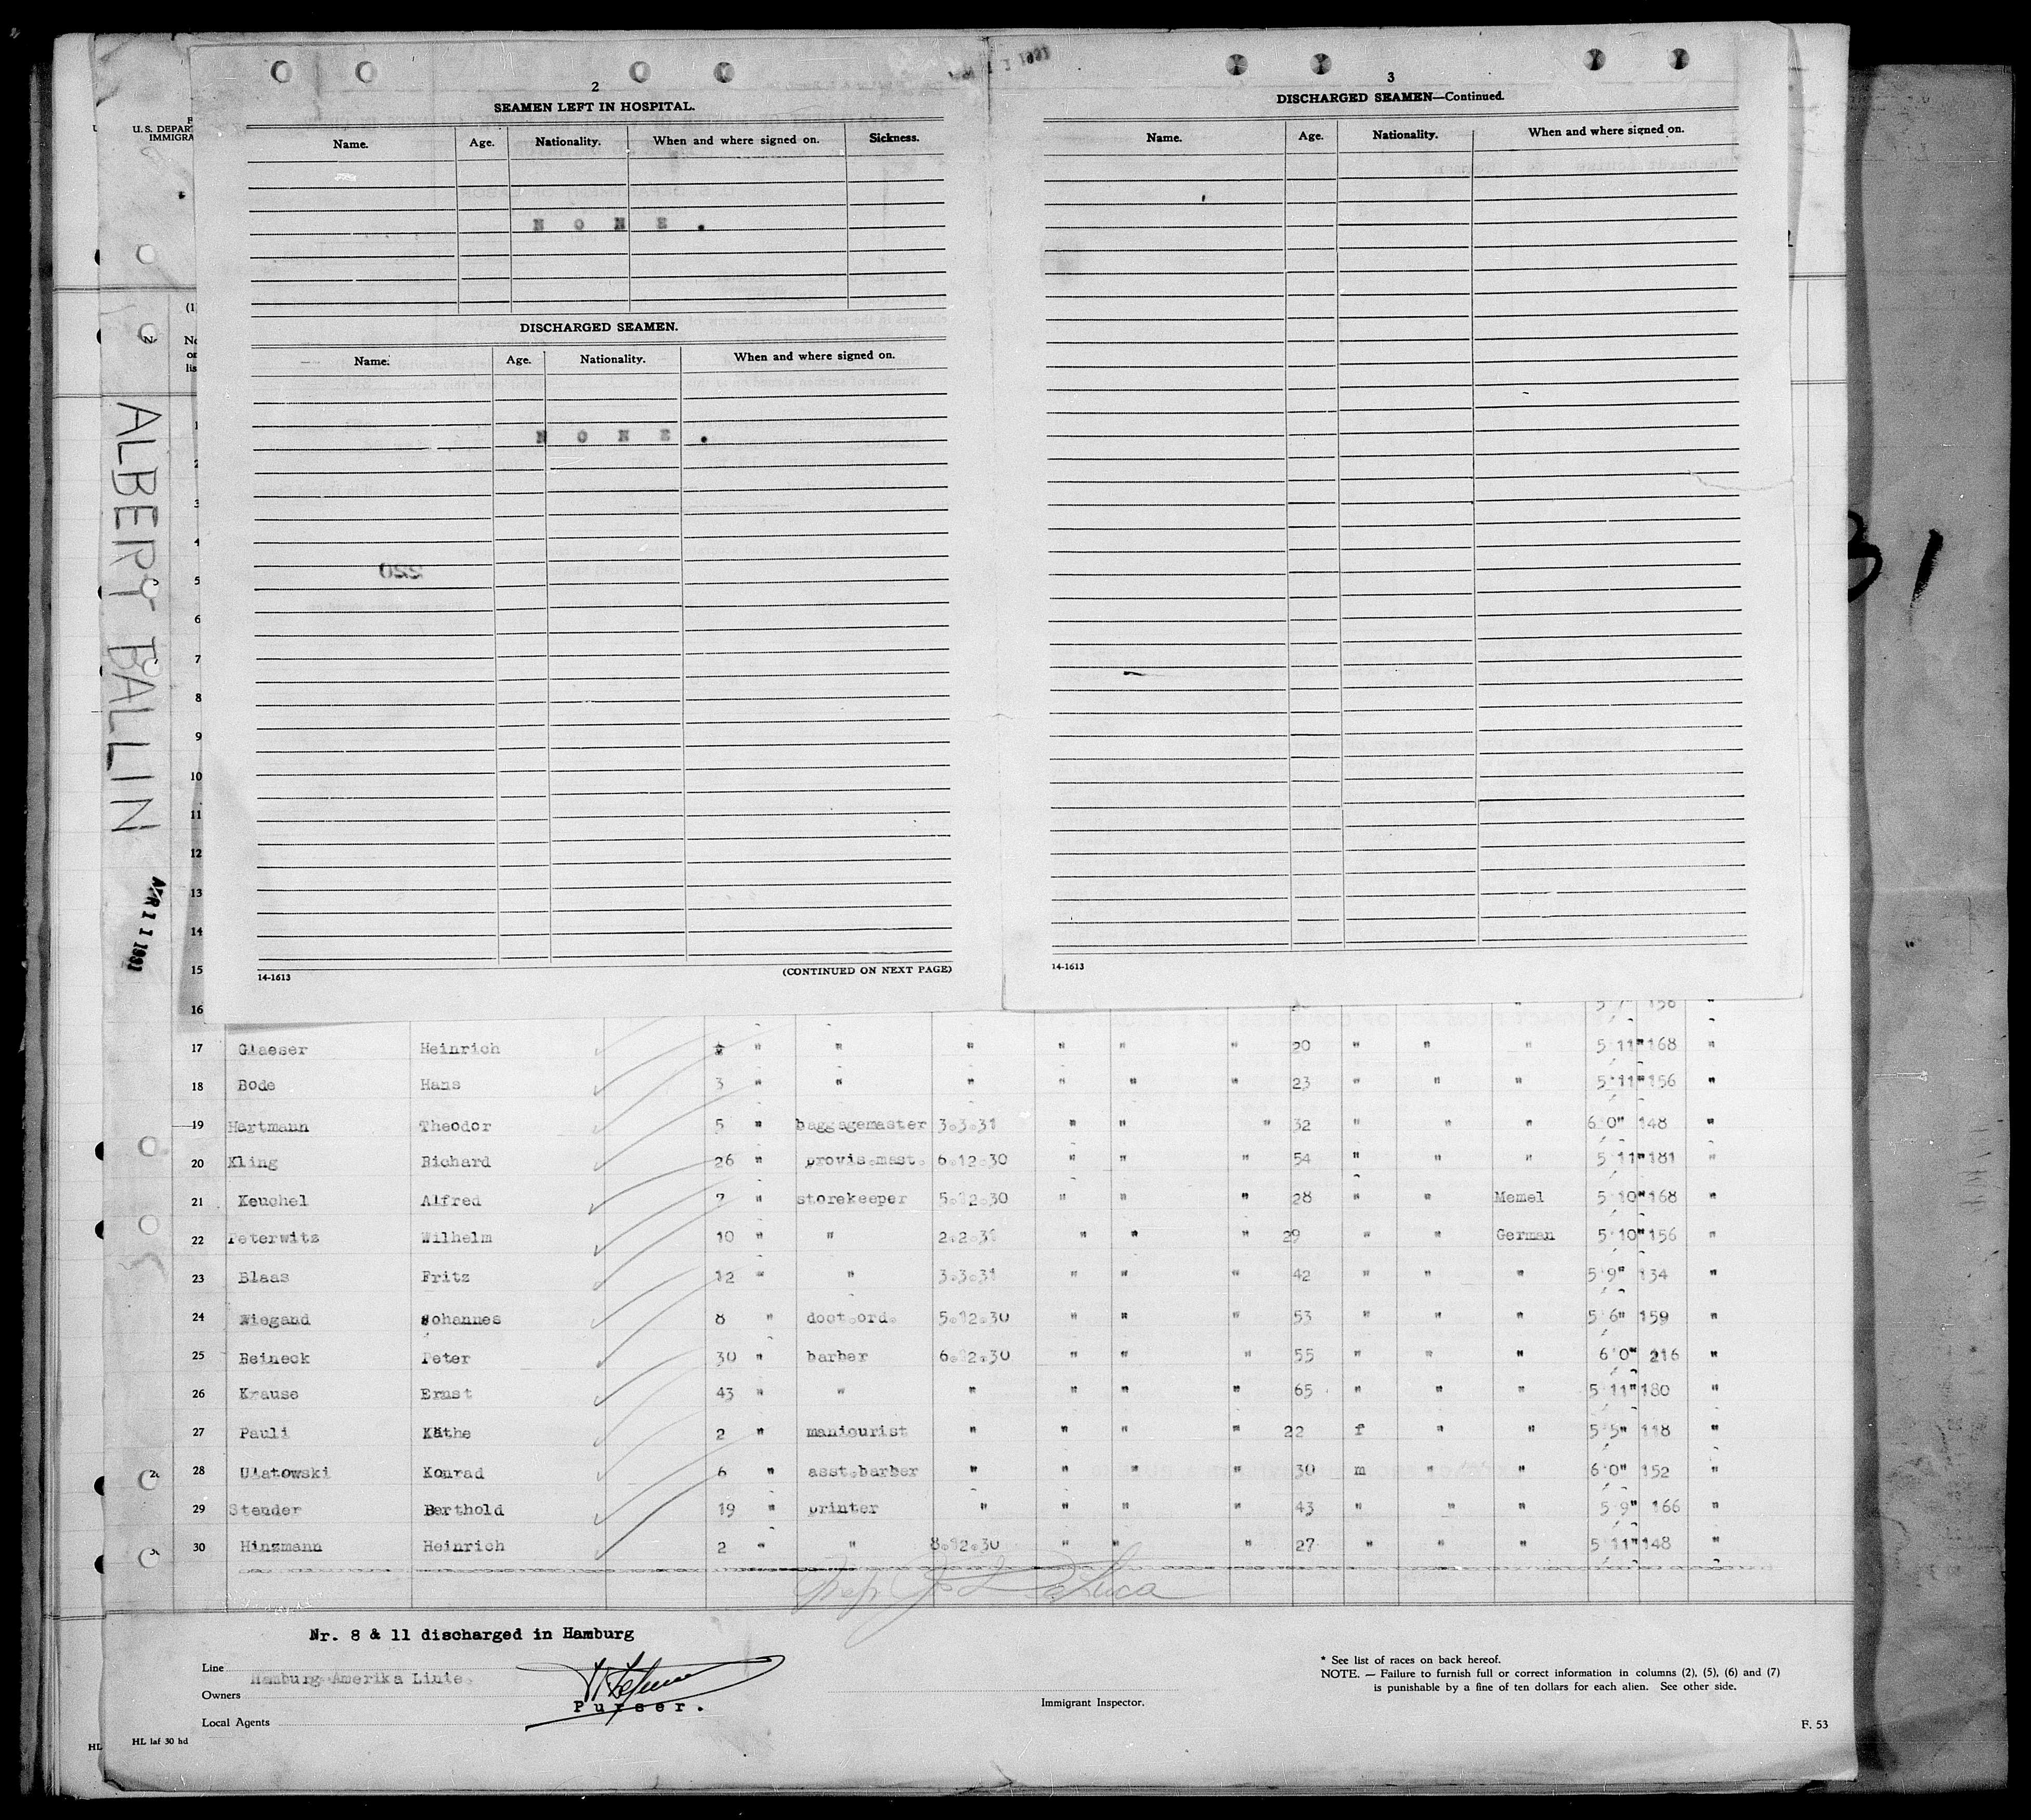 2
SEAMEN LEFT IN HOSPITAL.
Name. Age. Nationality. When and where signed on. Sickness.
N O N E .
DISCHARGED SEAMEN.
Name. Age. Nationality. When and where signed on.
N O N E .
14-1613 (CONTINUED ON NEXT PAGE)
3
DISCHARGED SEAMEN—Continued.
Name. Age. Nationality. When and where signed on.
14-1613
U.S. DEPAR
IMMIGRA
(1)
No
on
lis
ALBERT BALLIN
APR 11 1931
31
1
2
3
4
5
6
7
8
9
10
11
12
13
14
15
16 5'7" 156 "
17 Glaeser Heinrich " " " " " " 20 " " " 5'11" 168 "
18 Bode Hans 3 " " " " " " 23 " " " 5'11" 156 "
19 Hartmann Theodor 5 " baggagemaster 3.3.31 " " " 32 " " " 6'0" 148 "
20 Kling Richard 26 " provis.mast. 6.12.30 " " " 54 " " " 5'11" 181 "
21 Keuchel Alfred 7 " storekeeper 5.12.30 " " " 28 " " Memel 5'10" 168 "
22 Peterwitz Wilhelm 10 " " 2.2.31 " " " 29 " " German 5'10" 156 "
23 Blaas Fritz 12 " " 3.3.31 " " " 42 " " " 5'9" 134 "
24 Wiegand Johannes 8 " doct.ord. 5.12.30 " " " 53 " " " 5'6" 159 "
25 Reineck Peter 30 " barber 6.12.30 " " " 55 " " " 6'0" 216 "
26 Krause Ernst 43 " " " " " " 65 " " " 5'11" 180 "
27 Pauli Käthe 2 " manicurist " " " " 22 f " " 5'5" 118 "
28 Ulatowski Konrad 6 " asst.barber " " " " 30 m " " 6'0" 152 "
29 Stender Berthold 19 " printer " " " " 43 " " " 5'9" 166 "
30 Hinzmann Heinrich 2 " " 8.12.30 " " " 27 " " " 5'11" 148 "
Nr. 8 & 11 discharged in Hamburg
Line
Hamburg-Amerika Linie.
Owners
Purser.
Local Agents
Immigrant Inspector.
* See list of races on back hereof.
NOTE. — Failure to furnish full or correct information in columns (2), (5), (6) and (7)
is punishable by a fine of ten dollars for each alien. See other side.
F. 53
HL
HL laf 30 hd